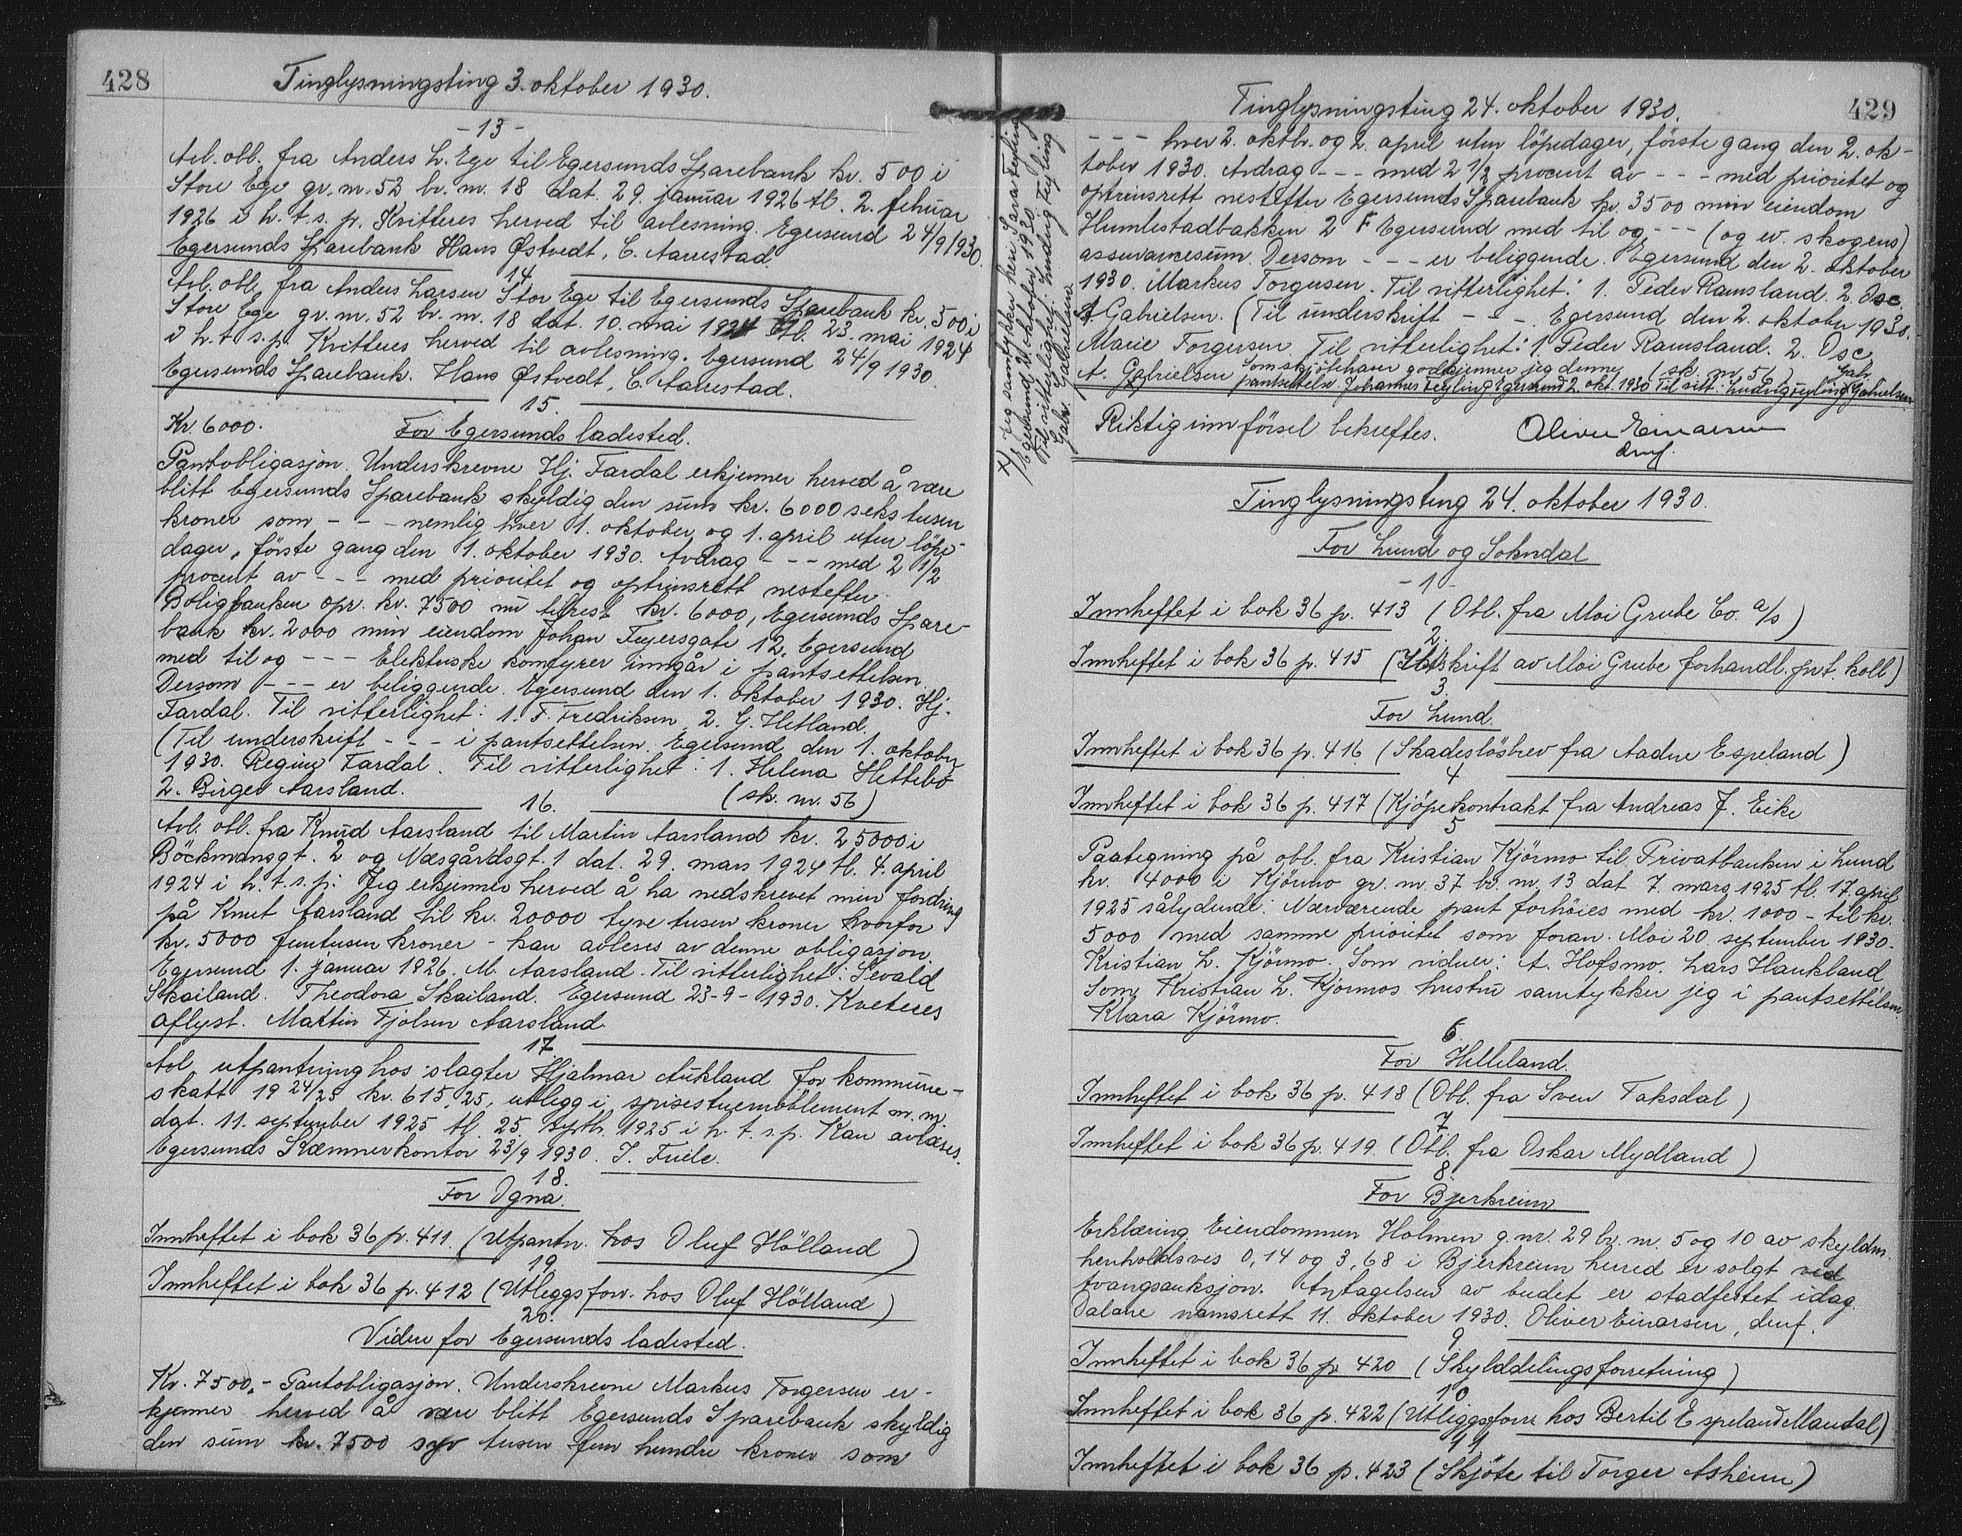 428
Tinglysningsting 3. oktober 1930.
- 13 -
Avl. obl. fra Anders L. Ege til Egersunds Sparebank kr. 500 i
Store Ege gr. nr. 52 br. nr. 18 dat. 29. januar 1926 tl. 2. febuar
1926 i h. t. s. p. Kvitteres herved til avlesning. Egersund 24/9 1930.
Egersunds Sparebank Hans Østvedt, C. Aarrestad.
14
Avl. obl. fra Anders Larsen Stor Ege til Egersunds Sparebank kr. 500 i
Store Ege gr. nr. 52 br. nr. 18 dat. 10. mai 1924 tl. 23. mai 1924
i h. t. s. p. Kvitteres herved til avlesning. Egersund 24/9 1930.
Egersunds Sparebank. Hans Østvedt, C. Aarrestad.
15.
Kr. 6000. For Egersunds ladested.
Pantobligasjon. Underskrevne Hj. Tardal erkjenner herved å være
blitt Egersunds Sparebank skyldig den sum kr. 6000 seks tusen
kroner som - - - nemlig hver 1. oktober og 1. april uten löpe-
dager, förste gang den 1. oktober 1930. Avdrag - - - med 2 1/2
procent av - - - med prioritet og optrinsrett nestefter
Boligbanken opr. kr. 7500 nu tilrest kr. 6000, Egersunds Spare-
bank kr. 2000 min eiendom Johan Feyersgate 12, Egersund
med til og - - - Elektriske komfyrer inngår i pantsettelsen.
Dersom - - - er beliggende. Egersund den 1. oktober 1930. Hj.
Tardal. Til vitterlighet: 1. F. Fredriksen 2. G. Hetland.
(Til underskrift - - - i pantsettelsen. Egersund den 1. oktober
1930. Regine Tardal. Til vitterlighet: 1. Helena Hettebö
2. Birger Aarsland. (sk. nr. 56)
16.
Avl. obl. fra Knud Aarsland til Martin Aarsland kr. 25000 i
Böckmansgt. 2 og Næsgårdsgt. 1 dat. 29. mars 1924 tl. 4. april
1924 i h. t. s. p: Jeg erkjenner herved å ha nedskrevet min fordring
på Knut Aarsland til kr. 20000 tyve tusen kroner hvorfor
kr. 5000 femtusen kroner - kan avleses av denne obligasjon.
Egersund 1. januar 1926. M. Aarsland. Til vitterlighet: Sevald
Skailand. Theodora Skailand. Egersund 23-9-1930. Kveteres
aflyst. Martin Tjolsen Aarsland
17.
Avl utpantning hos slagter Hjalmar Aukland for kommune-
skatt 19 24/25 kr. 615,25, utlegg i spisestuemöblement m. m.
dat. 11. september 1925 tl. 25. septb. 1925 i h. t. s. p. Kan avläses.
Egersunds Kæmnerkontor 23/9 1930. J. Fuele.
18.
For Ogna.
Innheftet i bok 36 p. 411. (Utpantn. hos Oluf Hölland)
19
Innheftet i bok 36 p. 412 (Utleggsforr. hos Oluf Hölland)
20.
Videre for Egersunds ladested.
Kr. 7500,- Pantobligasjon. Underskrevne Markus Torgersen er-
kjenner herved å være blitt Egersunds Sparebank skyldig
den sum kr. 7500 syv tusen fem hundre kroner som
x) Jeg samtykker heri Sara Tegling
Egersund 21 oktober 1930
Til vitterlighet: Ludvig Tegling
Gabr. Gabrielsen
Tinglysningsting 24. oktober 1930.
429
- - - hver 2. oktbr. og 2. april uten löpedager, förste gang den 2. ok-
tober 1930. Avdrag - - - med 2 1/2 procent av - - - med prioritet og
optrinsrett nestefter Egersunds Sparebank kr. 3500 min eiendom
Humlestadbakken 2 F Egersund med til og - - - (og ev. skogens)
assuransesum. Dersom - - - er beliggende. Egersund den 2. oktober
1930. Markus Torgersen. Til vitterlighet: 1. Peder Ramsland. 2. Osc
A. Gabrielsen. (Til underskrift - - -. Egersund den 2. oktober 1930.
Marie Torgersen Til vitterlighet: 1. Peder Ramsland. 2. Osc.
A. Gabrielsen Som skjötehaver godkjenner jeg denne (sk. nr. 56)
pantsettelse Johannes Tegling Egersund 2. okt. 1930 Til vitt: Ludvig Tegling Gabr. Gabrielsen
Riktig innförsel bekreftes. Oliver Einarsen
dmf.
Tinglysningsting 24. oktober 1930.
For Lund og Sokndal
- 1 -
Innheftet i bok 36 p. 413 (Obl. fra Moi Grube Co. a/s)
2.
Innheftet i bok 36 p. 415 (Utskrift av Moi Grube forhandl. prt. koll)
3.
For Lund.
Innheftet i bok 36 p. 416 (Skadeslösbrev fra Aadne Espeland)
4
Innheftet i bok 36 p. 417 (Kjöpekontrakt fra Andreas J. Eike
5
Paategning på obl. fra Kristian Kjörmo til Privatbanken i Lund
kr. 4000 i Kjörmo gr. nr. 37 br. nr. 13 dat 7. mars 1925 tl. 17. april
1925 sålydende: Nærværende pant forhöies med kr. 1000 - til kr.
5000 med samme prioritet som foran. Moi 20. september 1930.
Kristian L. Kjörmo. Som vidner: A. Hofsmo. Lars Haukland
Som Kristian L. Kjörmos hustru samtykker jeg i pantsettelsen
Klara Kjörmo.
6
For Helleland.
Innheftet i bok 36 p. 418 (Obl. fra Sven Taksdal)
7
Innheftet i bok 36 p. 419. (Obl. fra Oskar Mydland)
8.
For Bjerkreim
Erklæring Eiendommen Holmen g. nr. 29 br. nr. 5 og 10 av skyldm.
henholdsvis 0,14 og 3,68 i Bjerkreim herred er solgt ved
tvangsauksjon. Antagelsen av budet er stadfestet idag.
Dalane namsrett 11. oktober 1930. Oliver Einarsen, dmf.
9
Innheftet i bok 36 p. 420 (Skylddelingsforretning)
10
Innheftet i bok 36 p. 422 (Utleggsforr hos Bertil Espeland Maudal)
11
Innheftet i bok 36 p. 423 (Skjöte til Torger Asheim)